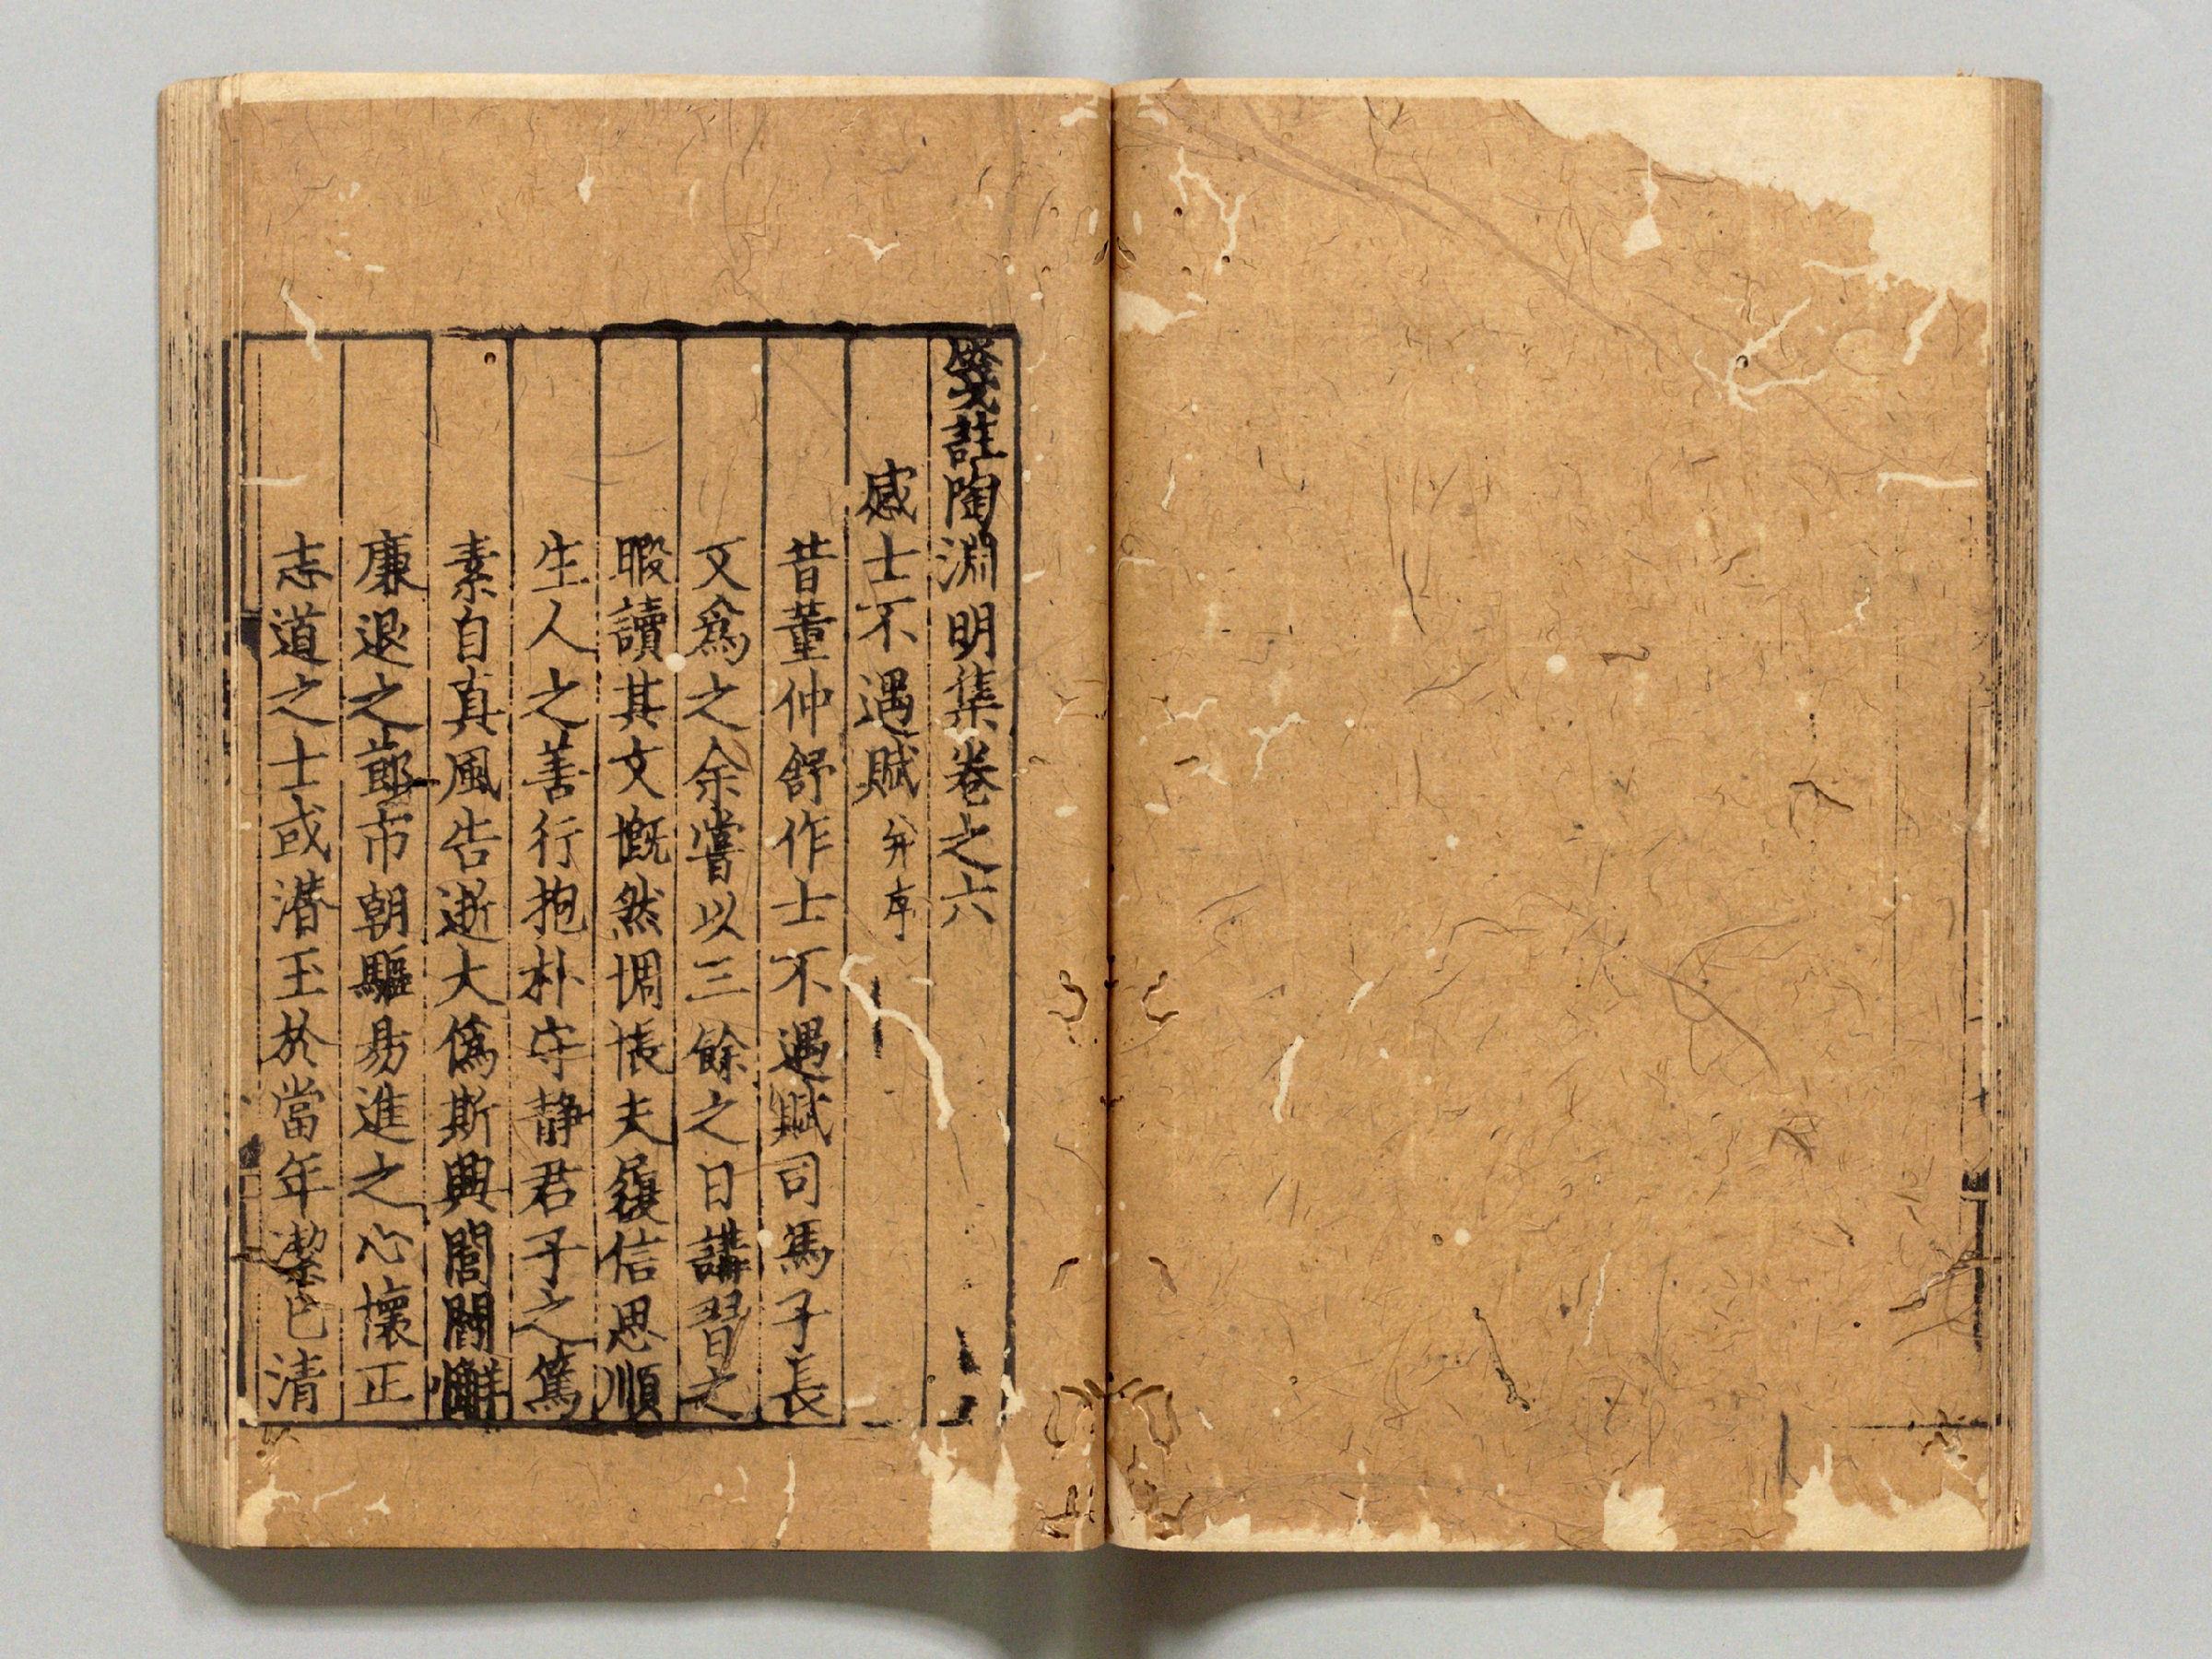 箋註陶淵明集卷之六
感士不遇賦 并序
昔董仲舒作士不遇賦司馬子長
文爲之余嘗以三餘之日講習之
暇讀其文慨然惆悵夫履信思順
生人之善行抱朴守静君子之篤
素自真風告逝大僞斯興閭閻懈
廉退之節市朝驅易進之心懷正
志道之士或潜玉於當年潔已清